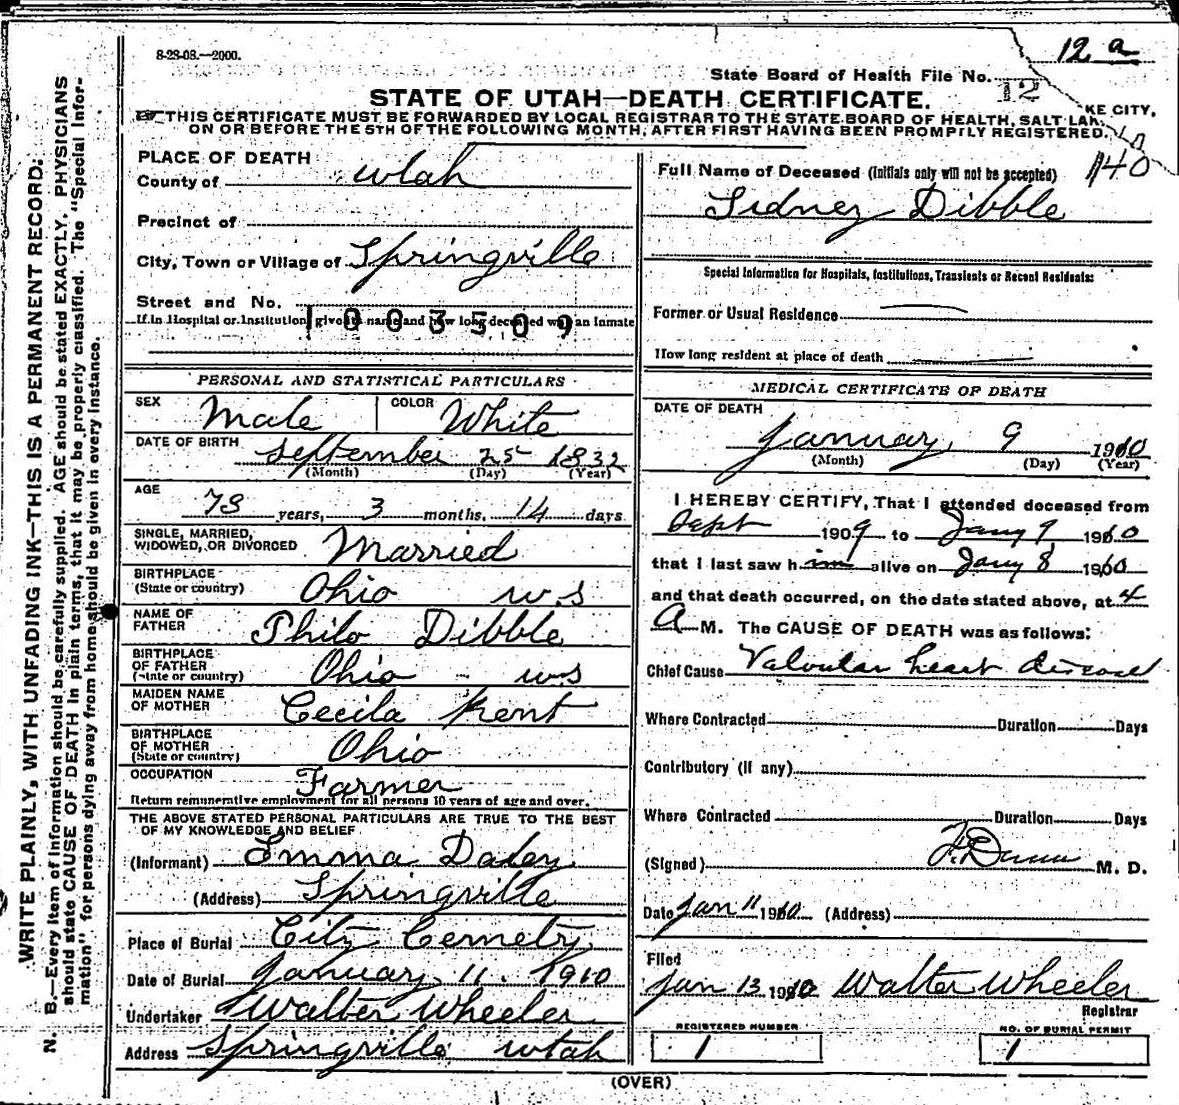 8-23-08.—2000.
12 a
State Board of Health File No. 12
STATE OF UTAH—DEATH CERTIFICATE.
THIS CERTIFICATE MUST BE FORWARDED BY LOCAL REGISTRAR TO THE STATE BOARD OF HEALTH, SALT LAKE CITY,
ON OR BEFORE THE 5TH OF THE FOLLOWING MONTH, AFTER FIRST HAVING BEEN PROMPTLY REGISTERED.
140
WRITE PLAINLY, WITH UNFADING INK—THIS IS A PERMANENT RECORD.
N. B.—Every item of information should be carefully supplied. AGE should be stated EXACTLY. PHYSICIANS
should state CAUSE OF DEATH in plain terms, that it may be properly classified. The "Special Infor-
mation" for persons dying away from home should be given in every instance.
PLACE OF DEATH
County of Utah
Precinct of
City, Town or Village of Springville
Street and No.
If in Hospital or Institution, give its name and how long deceased was an inmate
1003509
PERSONAL AND STATISTICAL PARTICULARS
SEX Male COLOR White
DATE OF BIRTH September 25 1832
(Month) (Day) (Year)
AGE
78 years, 3 months, 14 days
SINGLE, MARRIED,
WIDOWED, OR DIVORCED Married
BIRTHPLACE
(State or country) Ohio u.s
NAME OF
FATHER Philo Dibble
BIRTHPLACE
OF FATHER
(State or country) Ohio u.s
MAIDEN NAME
OF MOTHER Cecila Kent
BIRTHPLACE
OF MOTHER
(State or country) Ohio
OCCUPATION Farmer
Return remunerative employment for all persons 10 years of age and over.
THE ABOVE STATED PERSONAL PARTICULARS ARE TRUE TO THE BEST
OF MY KNOWLEDGE AND BELIEF
(Informant) Emma Daley
(Address) Springville
Place of Burial City Cemetry
Date of Burial January 11. 1910
Undertaker Walter Wheeler
Address Springville Utah
Full Name of Deceased (Initials only will not be accepted)
Sidney Dibble
Special Information for Hospitals, Institutions, Transients or Recent Residents:
Former or Usual Residence
How long resident at place of death
MEDICAL CERTIFICATE OF DEATH
DATE OF DEATH
January 9 1910
(Month) (Day) (Year)
I HEREBY CERTIFY, That I attended deceased from
Sept 1909 to Jany 9 1910
that I last saw him alive on Jany 8 1910
and that death occurred, on the date stated above, at 4
A M. The CAUSE OF DEATH was as follows:
Chief Cause Valvular heart disease
Where Contracted Duration Days
Contributory (if any)
Where Contracted Duration Days
(Signed) F. Dunn M. D.
Date Jan 11 1910 (Address)
Filed
Jan 13 1910 Walter Wheeler
Registrar
REGISTERED NUMBER
1
NO. OF BURIAL PERMIT
1
(OVER)